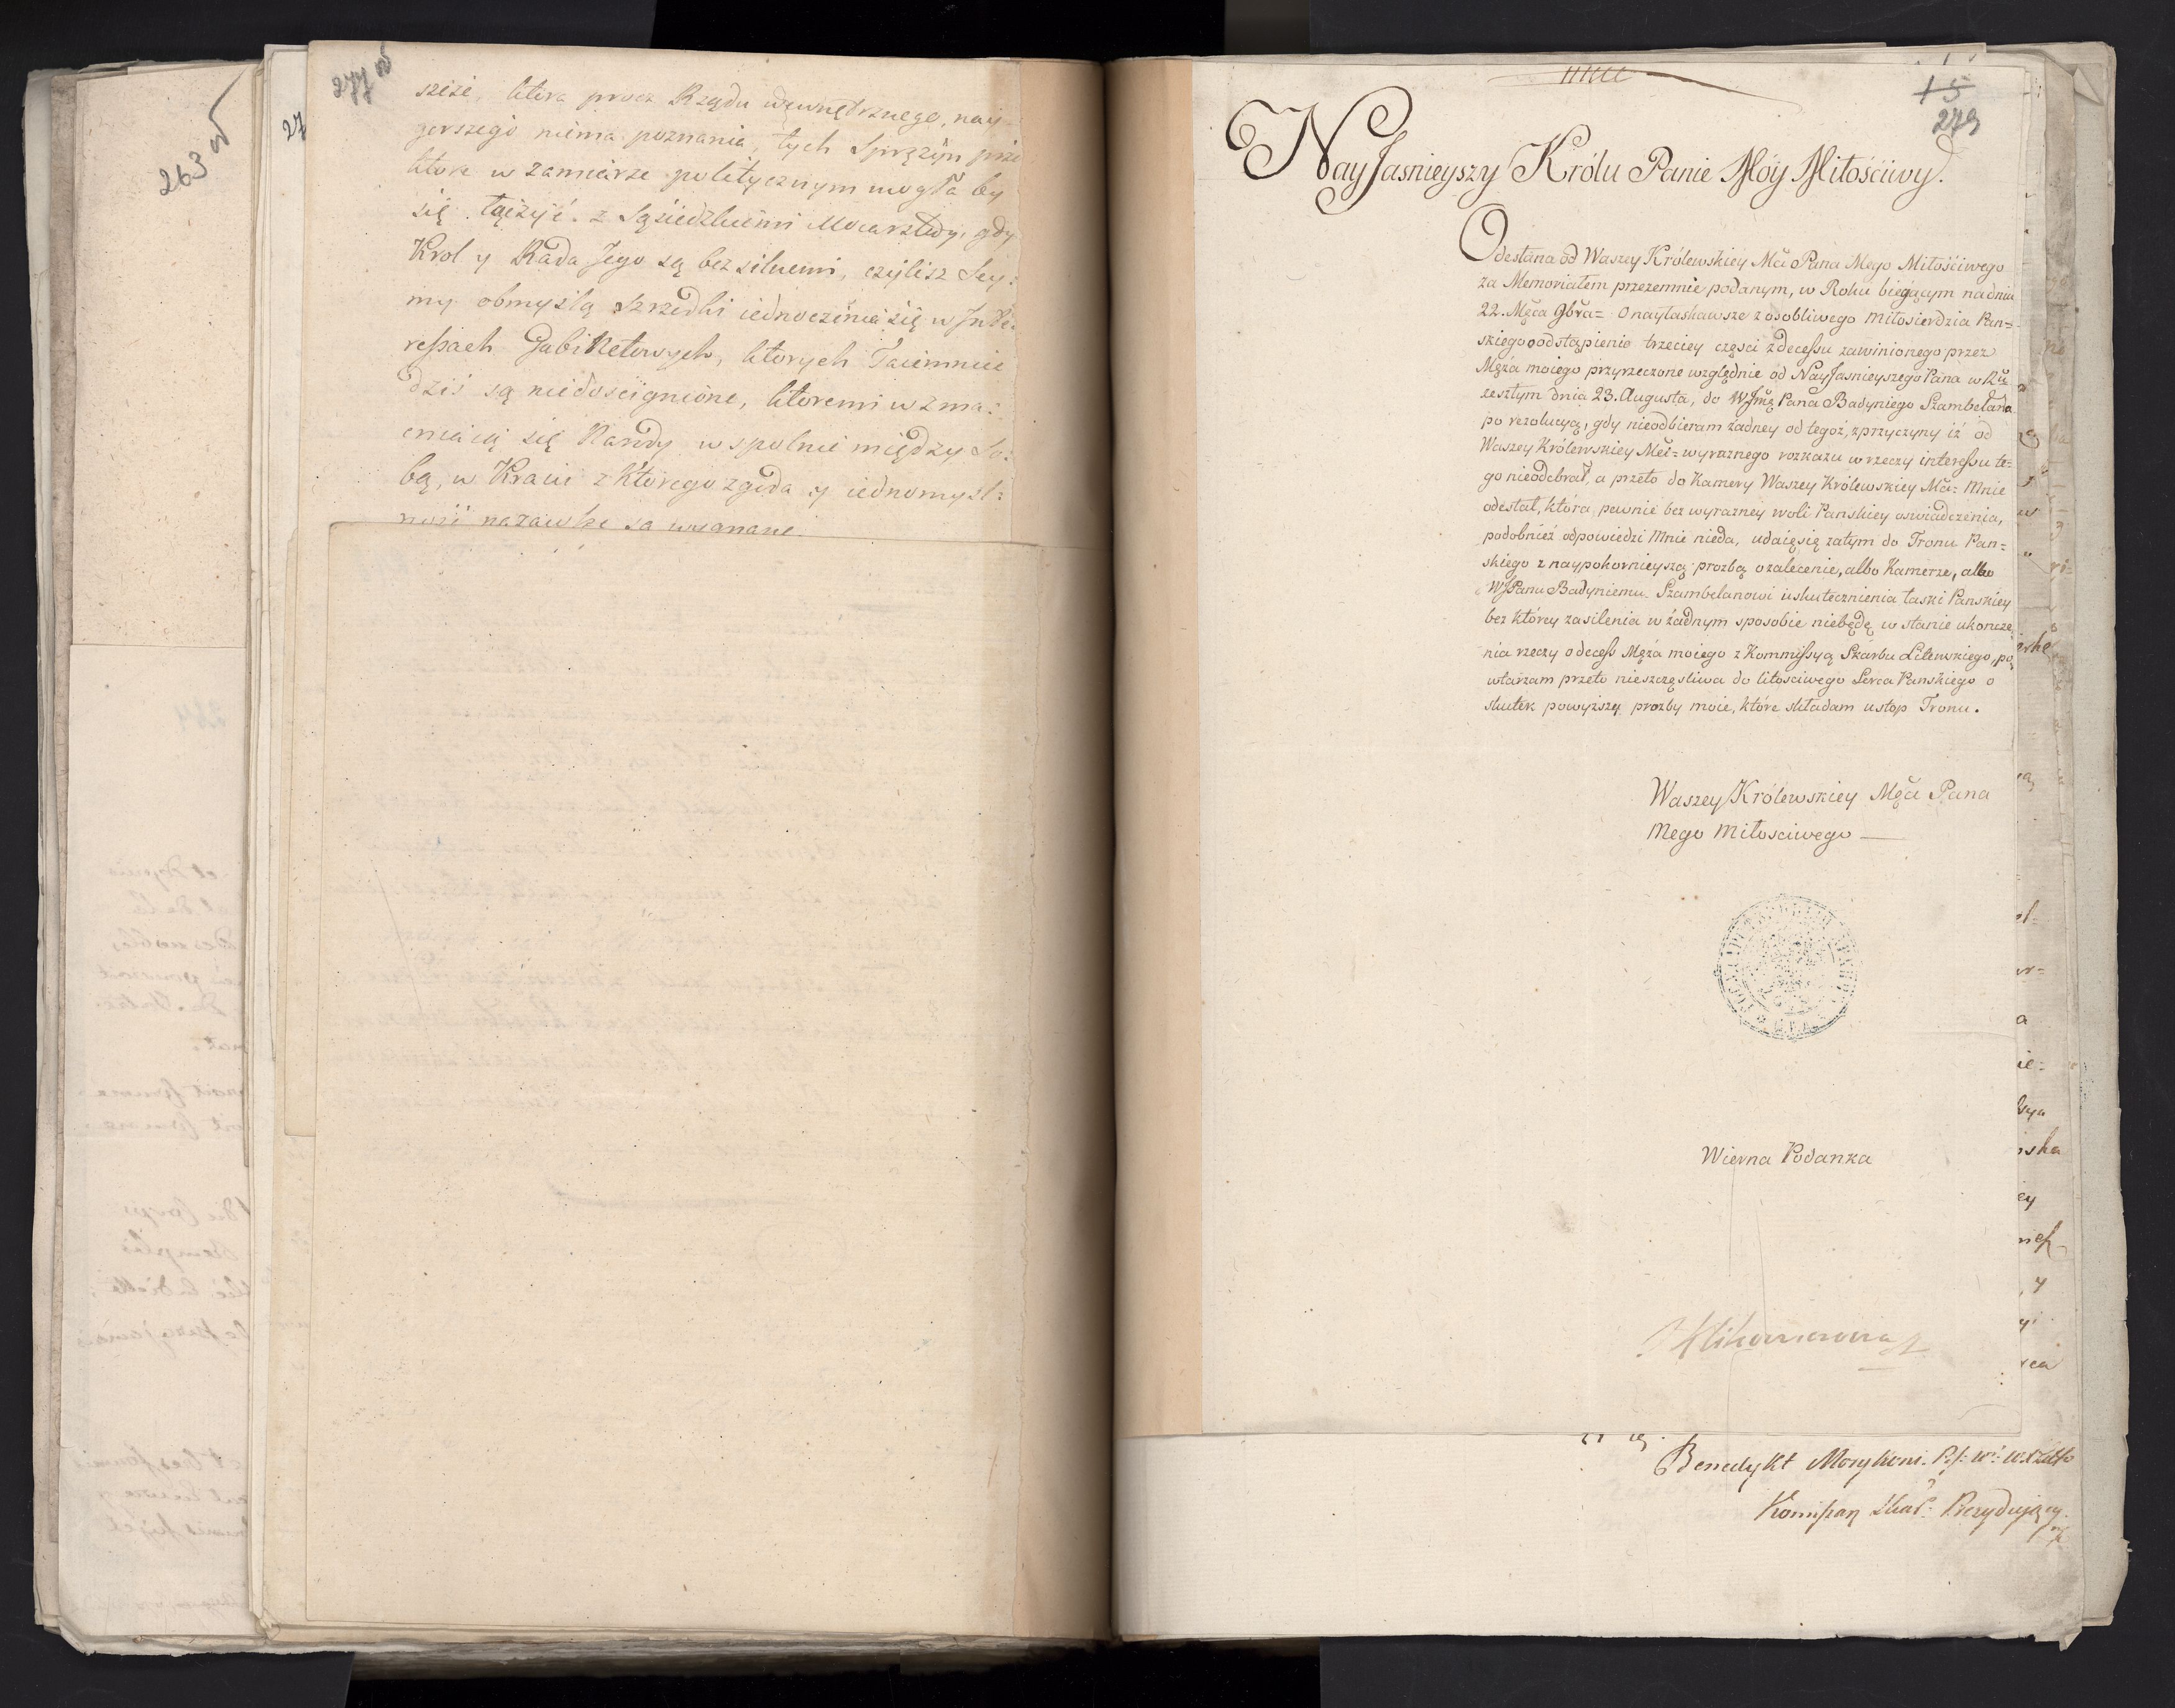 263 v
27
277 v
széże, ktora procz Rządu wewnętrznego, nay
gorszego niema poznania, tych Sprężyn prze
ktore w zamiarze politycznym mogła by
się łączyć z Sąsiedzkiemi Mocarstwy, gdy
Krol y Rada Jego są bezsilnemi, czylisz Sey:
my obmyslą szrzodki iednoczenia się w Inte
reſsach Gabinetowych, ktorych Taiemnice
dziś są niedoścignione, ktoremi wzma:
cniaią się Narody wspolnie między So:
bą, w Kraiu z ktorego zgoda y iednomysl:
ność nazawsze są wygnane.
15
279
Nayjasnieyszy Królu Panie Móy Miłościwy.
Odesłana od Waszey Królewskiey Mci Pana Mego Miłościwego
za Memoriałem przezemnie podanym, w Roku bieżącym na dniu
22. Męca 9bra= o nayłaskawsze z osobliwego miłosierdzia Pan=
skiego odstąpienie trzeciey częsci z deceſsu zawinionego przez
Męża moiego przyrzeczone względnie od Nayjasnieyszego Pana w Rŭ
zeszłym dnia 23. Augusta, do WJmę Pana Badyniego Szambelana
po rezolucyą, gdy nieodbieram żadney od tegoż, z przyczyny iż od
Waszey Królewskiey Mci= wyraznego rozkazu w rzeczy intereſsu te=
go nieodebrał, a przeto do Kamery Waszey Królewskiey Mci: Mnie
odesłał, która, pewnie bez wyrazney woli Panskiey oswiadczenia,
podobnież odpowiedzi Mnie nieda, udaię się zatym do Tronu Pan=
skiego z naypokornieyszą prozbą o zalecenie, albo Kamerze, albo
WJPanu Badyniemu Szambelanowi uskutecznienia łaski Panskiey
bez którey zasilenia w żadnym sposobie niebędę w stanie ukoncze
nia rzeczy o deceſs Męża moiego z Kommiſsyą Skarbu Litewskiego, po
wtarzam przeto nieszczęsliwa do litosciwego Serca Panskiego o
skutek powyższy prozby moie, które składam u stop Tronu.
Waszey Królewskiey Męci Pana
Mego Miłosciwego
Wierna Podanka
Benedykt Morykoni
Komiſsarz Skar: Prezydujący